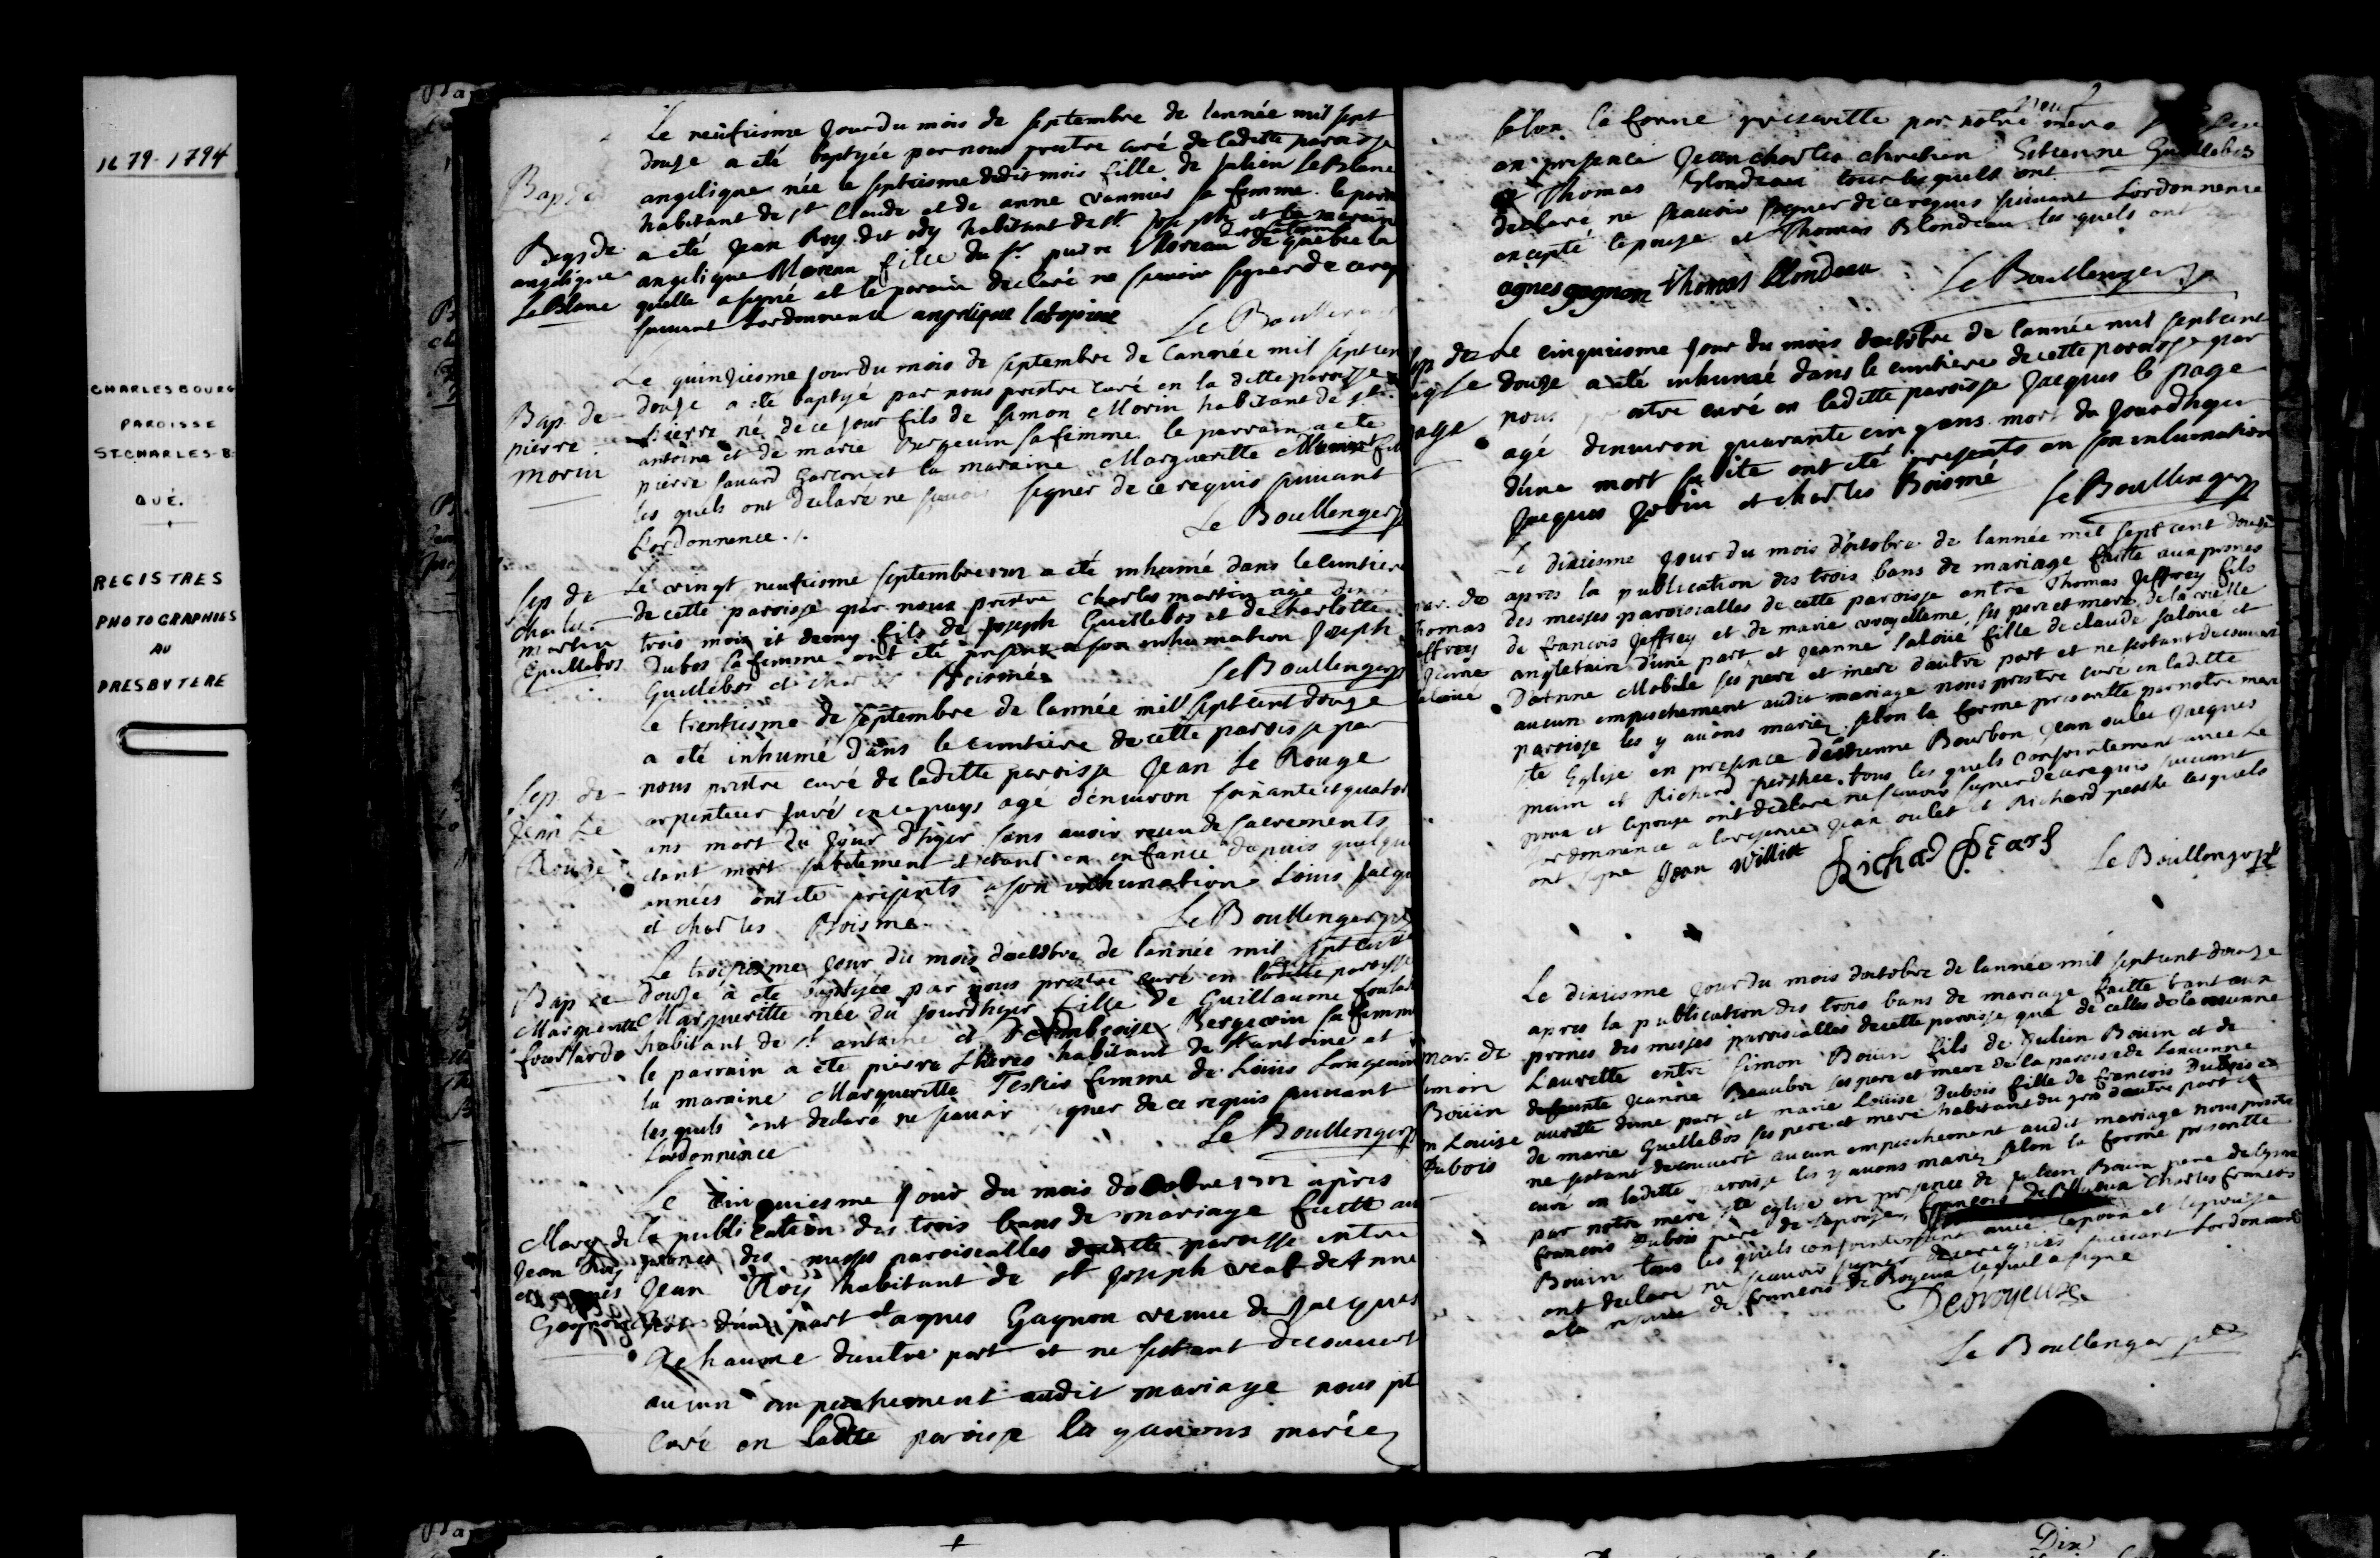 1679-1794
CHARLESBOURG
PAROISSE
ST. CHARLES-B.
QUÉ.
REGISTRES
PHOTOGRAPHIÉS
AU
PRESBYTERE
Le neufiesme Jour du mois de septembre de lannée mil sept
douze a eté baptyée par nous prestre curé de ladite paroisse
Bap de
angelique née le septiesme dudit mois fille de Julien LeBlanc
habitant de st Claude et de anne vannier sa femme. le parain
Bap de
a eté Jean Roy dit ody habitant de st Joseph et la maraine
angelique
angelique Moreau fille du sr pierre Moreau de quebec la
LeBlanc
quelle a signé et le parain declaré ne scavoir signer de ce req
suivant Lordonnence angelique latopine
Le Boullenger
Le quinziesme Jour du mois de septembre de Lannée mil sept cen
Bap de
douze a eté baptyé par nous prestre curé en la ditte paroisse
pierre
pierre né de ce Jour fils de simon Morin habitant de st
morin
antoine et de marie Bergeuin sa femme. le parrain a ete
pierre savard Garcon et la maraine Margueritte
les quels ont declaré ne scavoir signer de ce requis suivant
Lordonnence ./.
Le Boullenger p
Sep de
Le vingt neufiesme septembre 1712 a eté inhumé dans le cimtiere
charles
de cette paroisse par nous prestre charles martin agé den
martin
trois mois et demy fils de Joseph Guillebos et de charlotte
Guillebos
Dubos sa femme ont eté presens a son inhumation Joseph
Guillebos et char Boismé
Le Boullenger p
Le trentiesme de septembre de lannée mill sept cent douze
a eté inhumé dans le cimtiere de cette paroisse par
Sep. de
nous prestre curé de laditte paroisse Jean Le Rouge
Jean Le
arpenteur Juré en ce pays agé d'environ soixante et quator
Rouge
ans mort du Jour d'hyer sans avoir receu de sacrements
etant mort subitement et etant en enfance depuis quelque
années ont eté presents a son inhumation Louis Jacqu
et charles Boismé
Le Boullenger p
Le troisiesme Jour du mois doctobre de lannée mil sept cent
Bap de
douze a eté baptisée par nous prestre curé en laditte paroisse
Margueritte
Margueritte née du Jourdhyer fille de Guillaume foulard
foullarde
habitant de st antoine et d'Ambroise Bergevin sa femme
le parrain a ete pierre habitant de st antoine et
la maraine Margueritte Tessier femme de Louis
les quels ont declaré ne scavoir signer de ce requis suivant
Lordonnence
Le Boullenger p
Le Cinquiesme Jour du mois doctobre 1712 après
Mar. de
la publication des trois bans de mariage faitte au
Jean Roy
prones des messes paroissialles de cette paroisse entre
et agnes
Jean Roy habitant de st Joseph veuf de Anne
Gagnon
d'une part et agnes Gagnon veuve de Jacques
Rehaume d'autre part et ne sestant decouvert
aucun empeschement audit mariage nous pt
curé en laditte paroisse les y auons mariez
neuf
selon la forme prescritte par notre mere
en presence Jean charles chrestien Estienne Guillebos
et Thomas Blondeau tous lesquels ont
declaré ne scavoir signer de ce requis suivant Lordonnence
excepté lepouse et Thomas Blondeau les quels ont
agnes gagnon Thomas blondeau
Le Boullenger p
Sep de
Le cinquiesme Jour du mois doctobre de lannée mil sept cent
Le
douze a eté inhumé dans le cimtiere de cette paroisse par
page
nous prestre curé en laditte paroisse Jacques le page
agé denviron quarante cinq ans mort du Jourdhyer
dune mort subite ont eté presents en son inhumation
Jacques Jobin et charles Boismé
Le Boullenger p
Le dixiesme Jour du mois d'octobre de lannée mil sept cent douze
Mar. de
apres la publication des trois bans de mariage faitte aux prones
Thomas
des messes paroissialles de cette paroisse entre Thomas Jeffrey fils
Jeffrey
de francois Jeffrey et de marie ses pere et mere de la ville
Jeanne
angletaire d'une part, et Jeanne Salouë fille de claude Salouë et
Salouë
D'Anne Mobile ses pere et mere d'autre part et ne sestant decouvert
aucun empeschement audit mariage nous prestre curé en laditte
paroisse les y auons mariez selon la forme prescritte par notre mere
ste Eglise en presence destienne Bourbon Jean oulet Jacques
et Richard peshee tous les quels conjointement avec Le
et lepouse ont declaré ne scavoir signer de ce requis suivant
Lordonnence a la reserve Jean oulet et Richard peshe lesquels
ont signé Jean Williet Richad Pearl
Le Boullenger p
Le dixiesme Jour du mois doctobre de lannée mil sept cent douze
apres la publication des trois bans de mariage faitte tant aux
mar. de
prones des messes paroissialles de cette paroisse que de celles de la ancienne
simon
Laurette entre simon Bouin fils de Julien Bouin et de
Bouin
defunte Jeanne Beaubre ses pere et mere de la paroisse de Lancienne
m Louise
aurette dune part et marie Louise Dubois fille de francois Dubois et
Dubois
de marie Guillebos ses pere et mere habitant du gros d'autre part et
ne sestant decouvert aucun empeschement audit mariage nous prestre
curé en laditte paroisse les y auons mariez selon la forme prescritte
par notre mere ste Eglise en presence de Julien Bouin pere de
francois Dubois pere de lepouse, Charles francois
Bouin tous les quels conjointement avec lepoux et lepouse
ont declaré ne scavoir signer de ce requis suivant Lordonnence
a la reserve de francois De Royeux lequel a signé
Desroyeux
Le Boullenger ptre
Dix